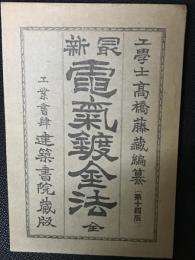 工學士髙橋藤藏編纂 (第十四版)
最新
電氣鍍金法 全
工業書肆 建築書院藏版